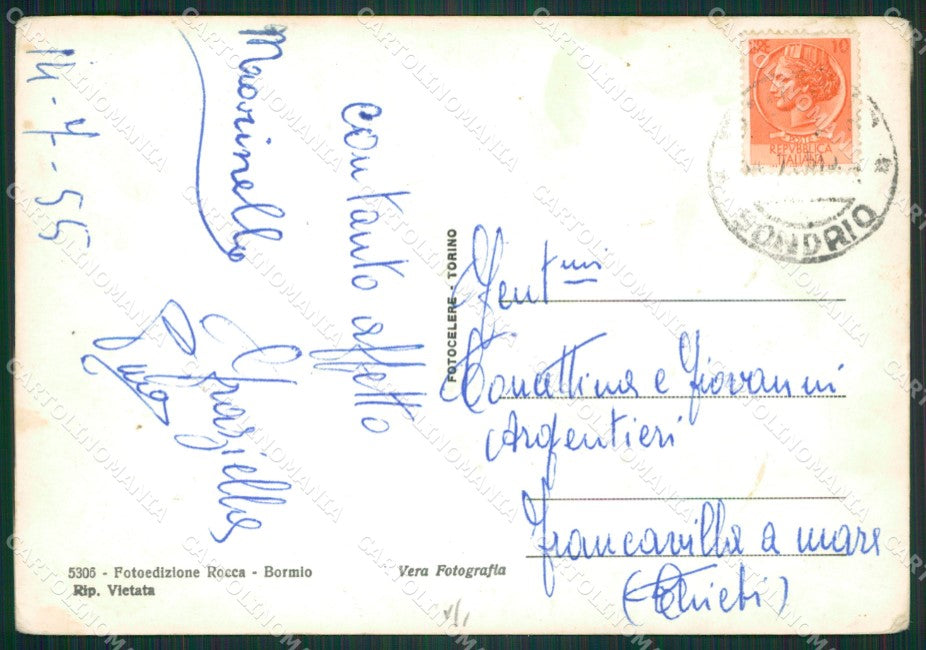 14-7-55
con tanto affetto
Graziella
Marinella
10
REPVBBLICA
ITALIANA
SONDRIO
FOTOCELERE - TORINO
Gent.mi
Concettina e Giovanni
Argentieri
Francavilla a mare
(Chieti)
5306 - Fotoedizione Rocca - Bormio
Rip. Vietata
Vera Fotografia
CARTOLINOMANIA